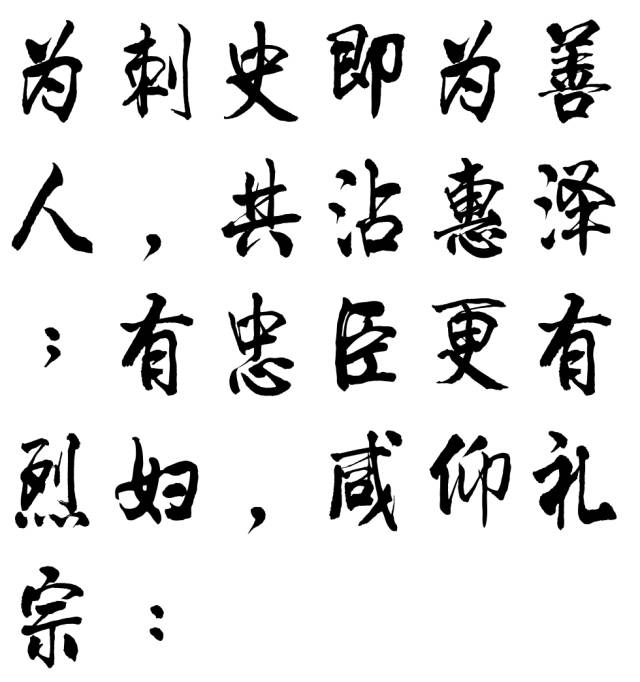 为刺史即为善
人，共沾惠泽
；有忠臣更有
烈妇，咸仰礼
宗：